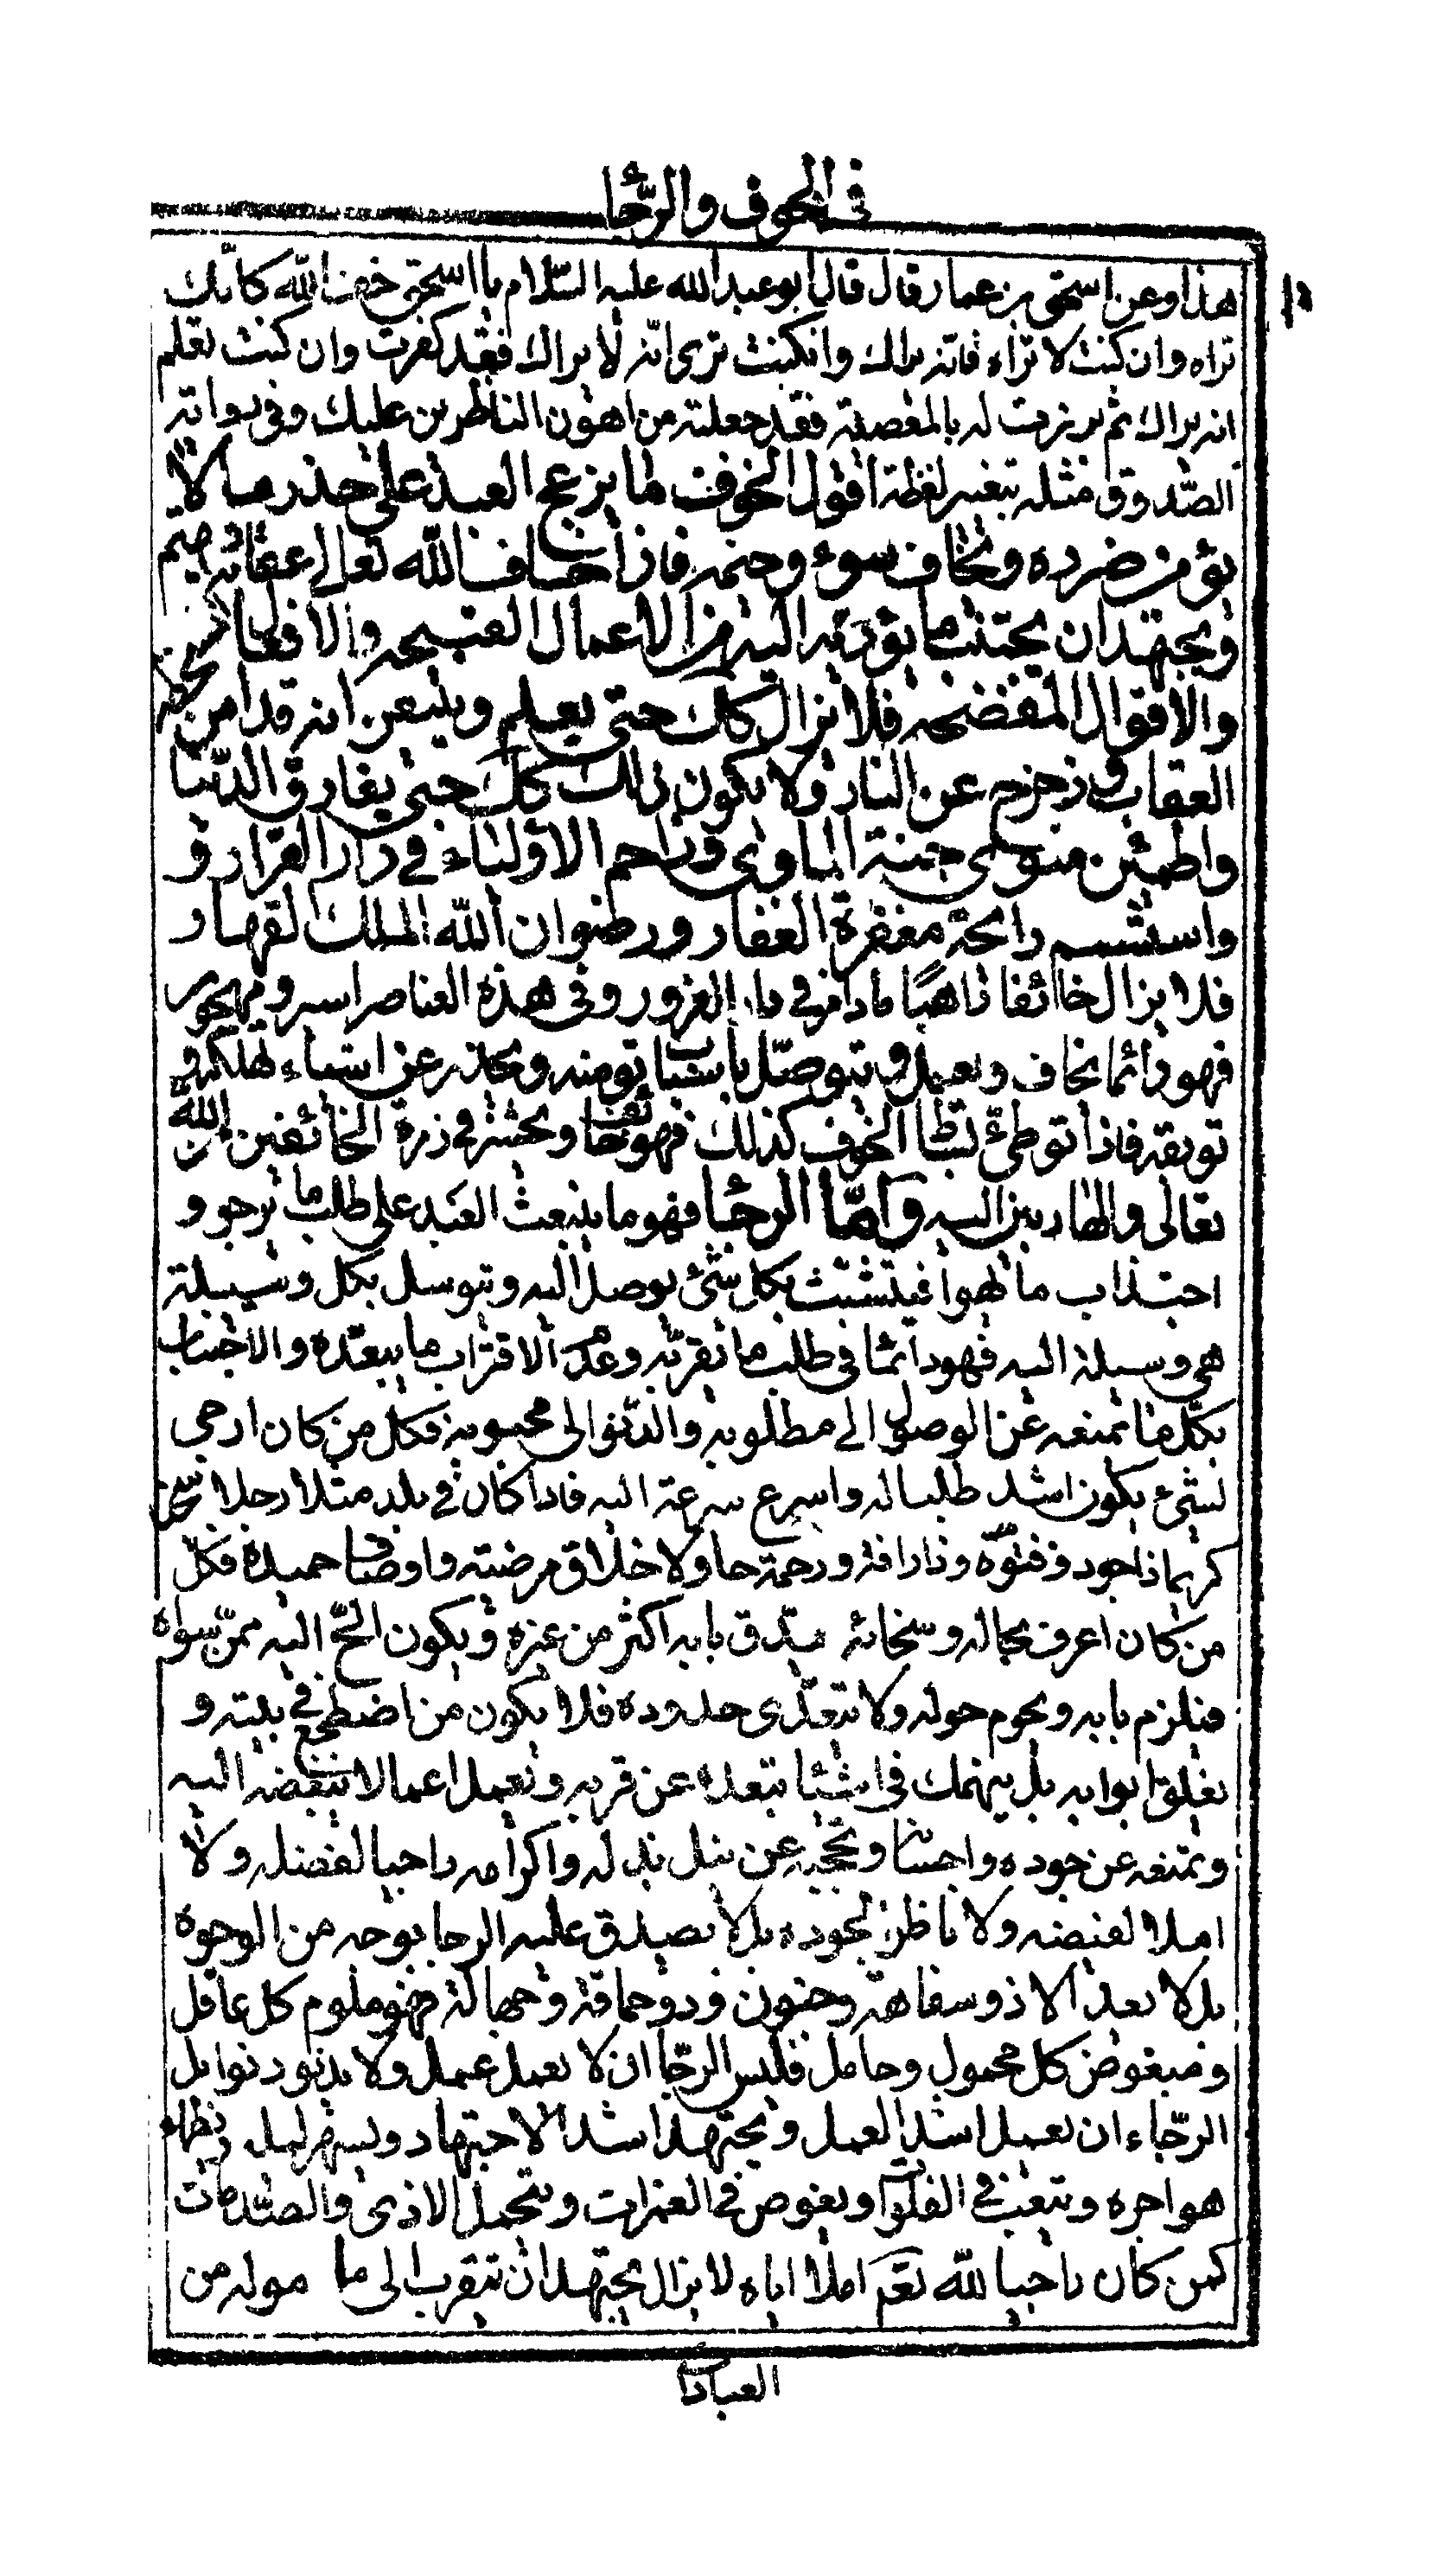 في الخوف والرّجاء
١٥
هذا وعن اسحق بن عمار قال قال ابو عبد الله عليه السّلام يا اسحق خف الله كانّك
تراه وان كنت لا تراه فانّه يراك وانكنت ترى انّه لا يراك فقد كفرت وان كنت تعلم
انه يراك ثم برزت له بالمعصية فقد جعلته من اهون الناظرين عليك وفي رواية
الصّدوق مثله بتغيير لفظة اقول الخوف لما يزعج العبد على حذر مما لا
يؤمن ضرده ويخاف سوء وخمه فاذا خاف الله تعالى عقابه
ويجتهد ان يجتنب ما يؤديه اليه من الاعمال القبيحه والافعال
والاقوال المفضحه فلا يزال كك حتى يعلم ويتيقن انه قد امن من
العقاب وزحزح عن النار ولا يكون ذلك كك حتى يفارق الدّنيا
واطمئن جنة الماوى وزاحم الاولياء في دار القرار و
واستشم رايحة مغفرة الغفار ورضوان الله الملك القهار
فلا يزال خائفا ذاهبًا مادام في دار الغرور وفي هذه العناصر اسر و مهجور
فهو دائما يخاف ويعمل ويتوصّل باسباب تومنه ويحذر عن اشياء تهلكه و
توبقه فاذا توطئ الخوف كذلك فهو خائف ويحشر في زمرة الخائفين من الله
تعالى والهاربين اليه وامّا الرجاء فهو ما ينبعث العبد على طلب ما يرجو و
اجتذاب ما يهوا فيتشبّث بكل شئ يوصل اليه ويتوسل بكل وسيلة
هي وسيلة اليه فهو دائما في طلب ما يقربه وعدم الاقتراب ما يبعّده والاجتناب
بكلّ ما يمنعه عن الوصول الى مطلوبه والدّنو الى محبوبه فكل من كان ارجى
لشئ يكون اشد طلبا له واسرع سرعة اليه فاذا كان في بلد مثلا رجلا سخى
كريما ذا جود وفتوّة وذا رافة ورحمة حاو لاخلاق مرضيّة واوصاف حميدة فكلّ
من كان اعرف بحاله وسخائه يدّق بابه اكثر من غيره ويكون الحّ اليه ممّن سواه
فيلزم بابه ويحوم حوله ولا يتعدّى حدوده فلا يكون من اضطجع في بيته و
يغلق ابوابه بل ينهمك في اشيئا تبعده عن قربه ويعمل اعمالا تبغضه اليه
وتمنعه عن جوده واحسانه وتحجبه عن نيل بذله واكرامه راجيا لفضله ولا
املا لفيضه ولا ناظرا لجوده بل لا يصدق عليه الرجا بوجه من الوجوه
بل لا يعد الا ذو سفاهة وجنون وذو حماقة وجهالة فهو ملوم كل عاقل
ومبغوض كل محمول وحامل فليس الرجّا ان لا يعمل عمل ولا يدنو دنوا بل
الرجّاء ان يعمل اشد العمل ويجتهد اشد الاجتهاد ويسهر ليله ويظماء
هواجره ويتعب في الفلوات ويغوص في الغمرات ويتحمل الاذى والصّدمات
كمن كان راجيا لله تعم املا اياه لا يزال يجتهد ان يتقرب الى ما موله من
العبادا